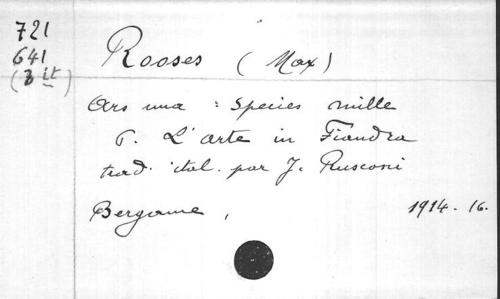 721
641
(3 it)
Rooses (Max)
Ars una : Species mille
T. L'arte in Fiandra
trad. ital. par J. Rusconi
Bergame, 1914. 16.